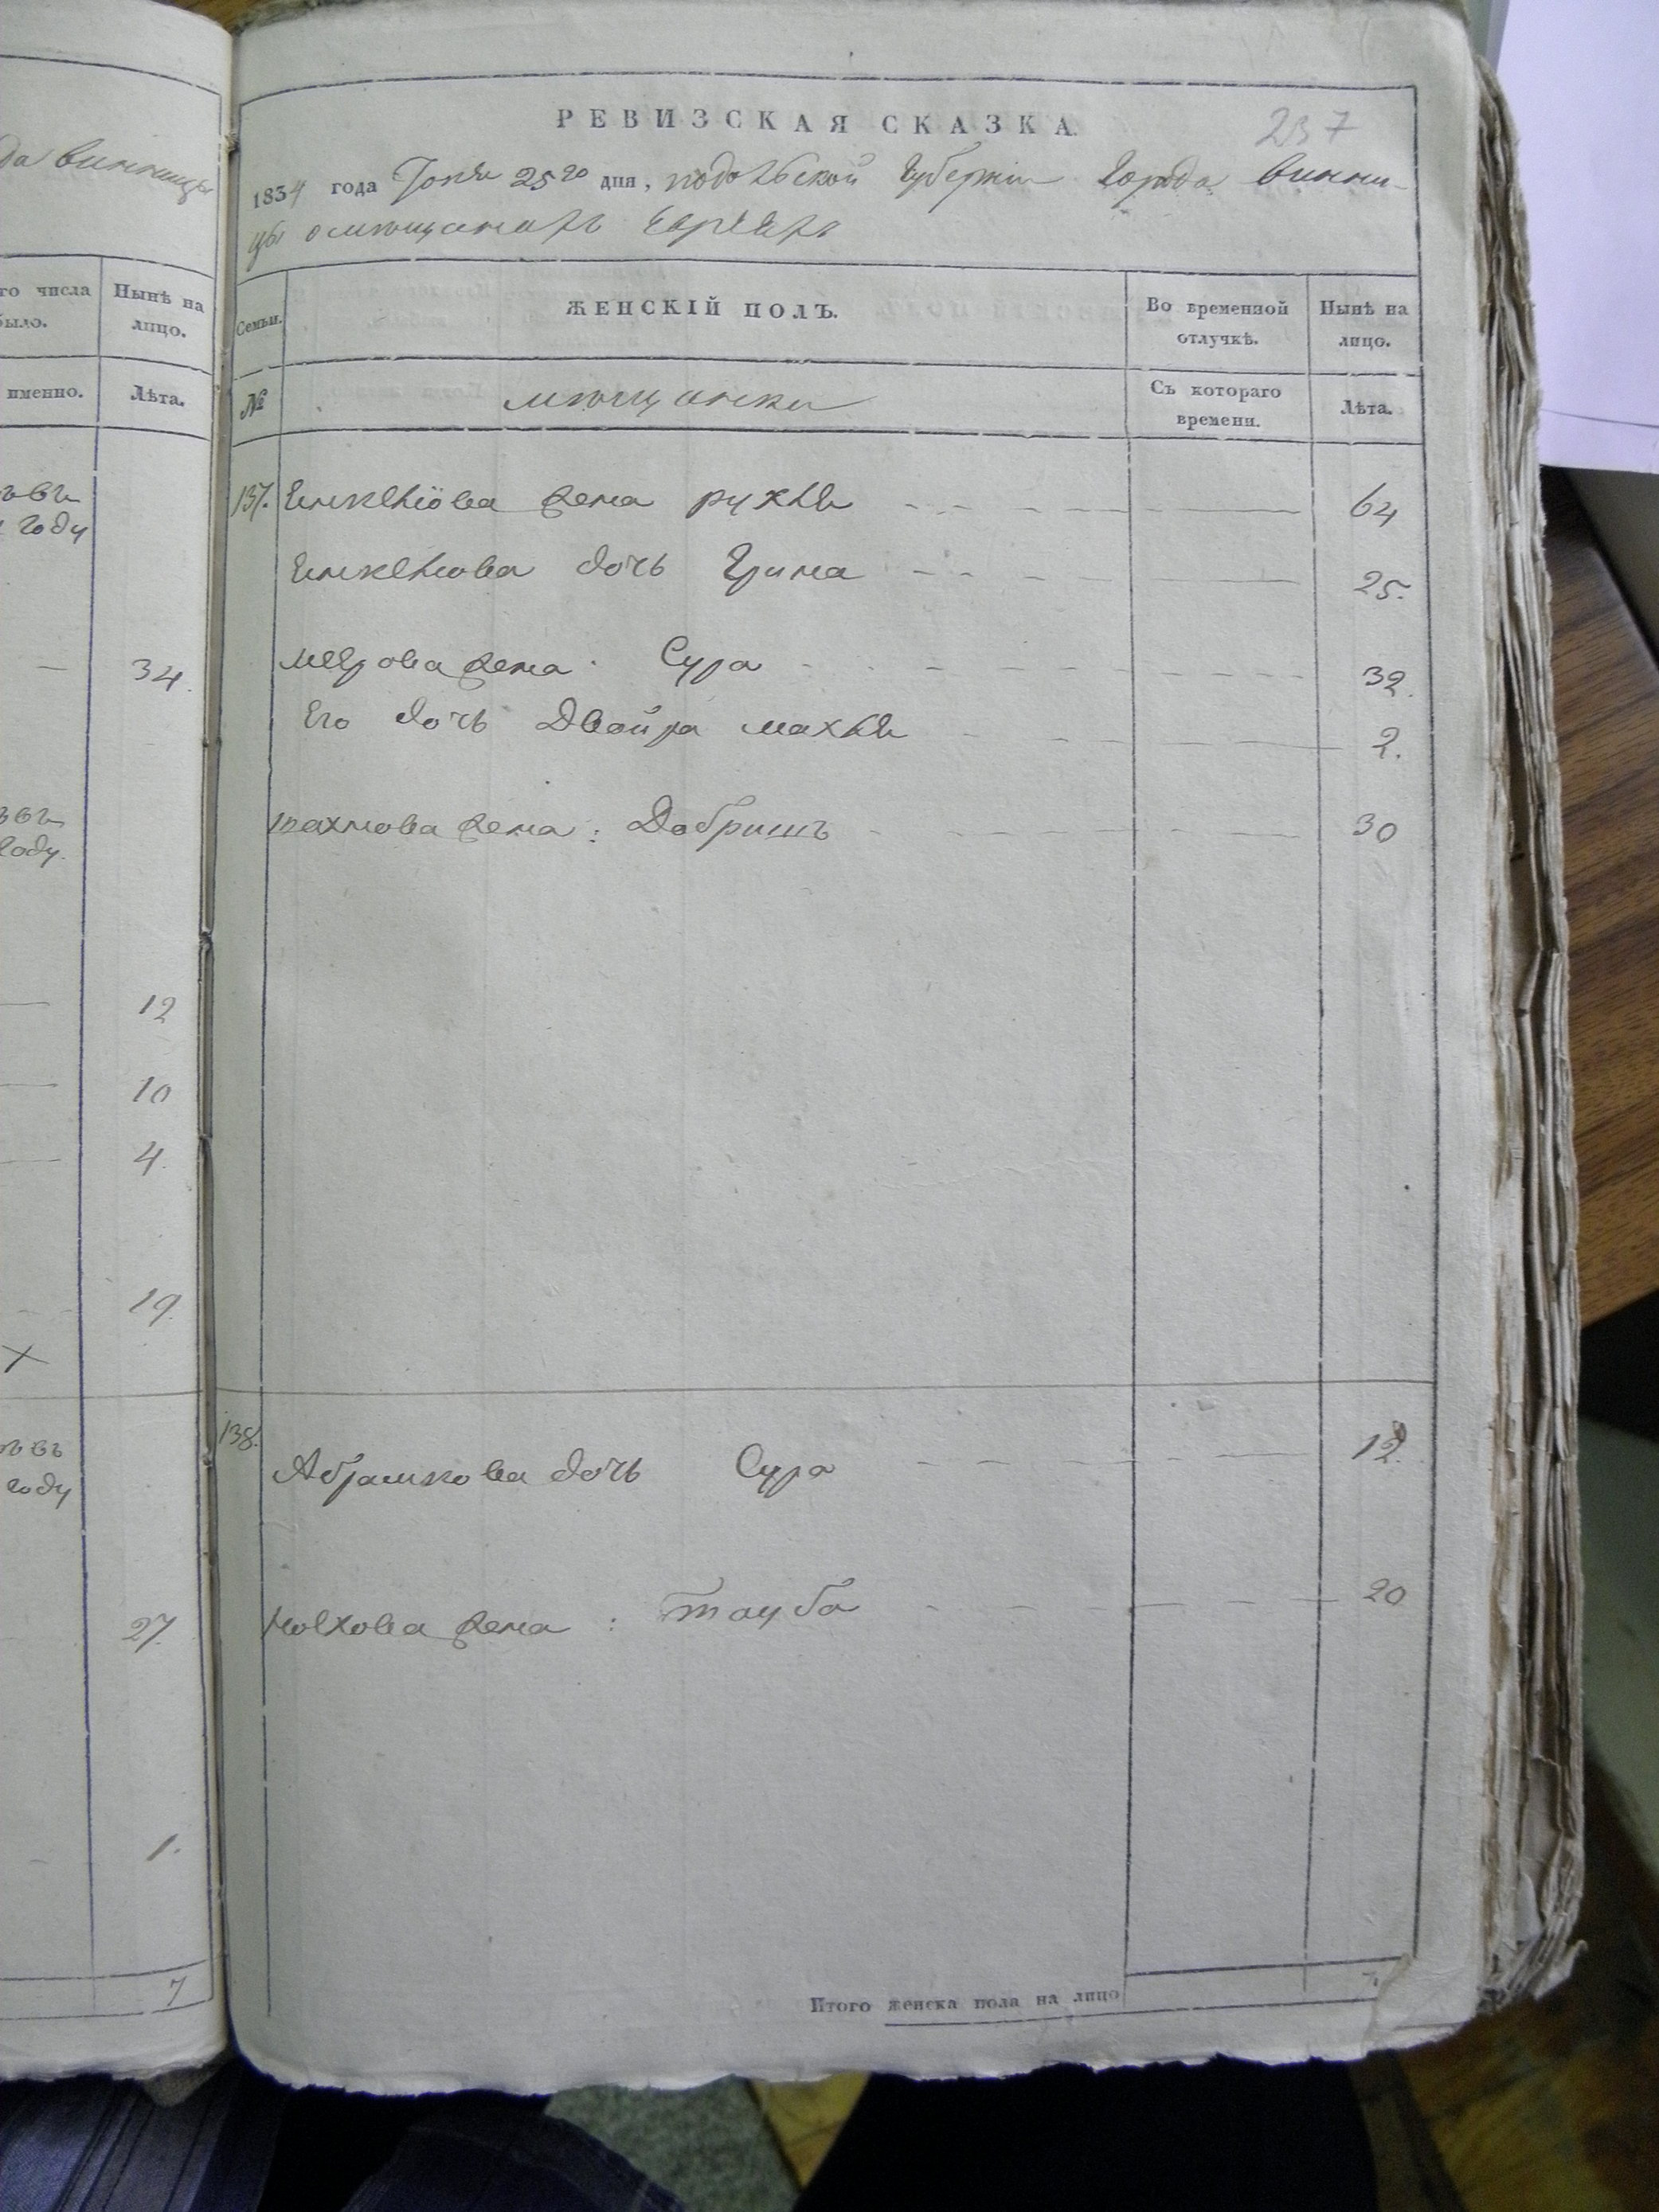 да винницы
го числа
было.
Нынѣ на
лицо.
именно.
Лѣта.
году
34.
году.
12
10
4.
19.
×
году
27.
1.
7
РЕВИЗСКАЯ СКАЗКА.
237
1834 года Іюня 25го дня, подольской Губерніи Города Винни-
цы омѣщанахъ Евреяхъ
Семьи.
ЖЕНСКІЙ ПОЛЪ.
Во временной
отлучкѣ.
Нынѣ на
лицо.
№
мѣщанки
Съ котораго
времени.
Лѣта.
137. жена рухля 64
дочь 25.
меерова жена Сура 32.
Его дочь Двойра махля 2.
жена: Добришъ 30
138.
Абрашкова дочь Сура 12.
жена: Тауба 20
Итого женска пола на лицо